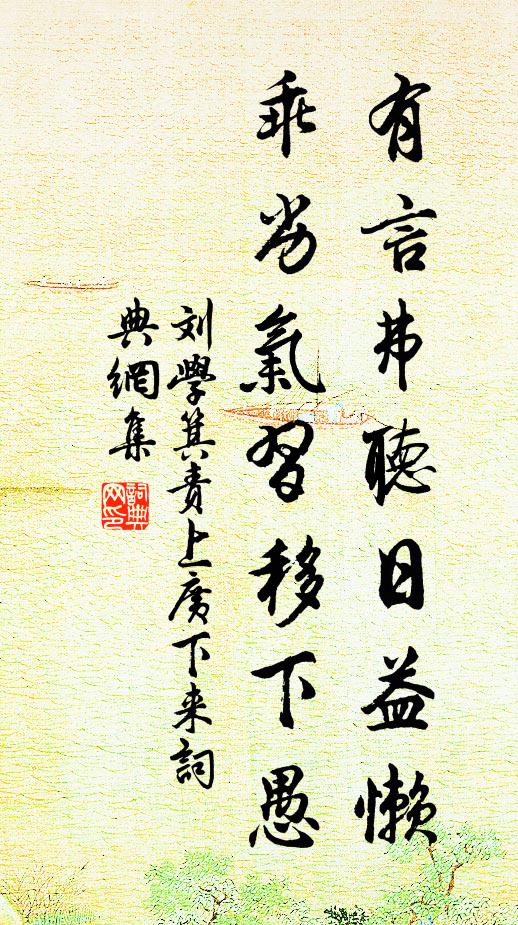 有言弗聽日益懶
乖劣氣習移下愚
刘學箕責上廣下来詞
典網集
詞典
网印